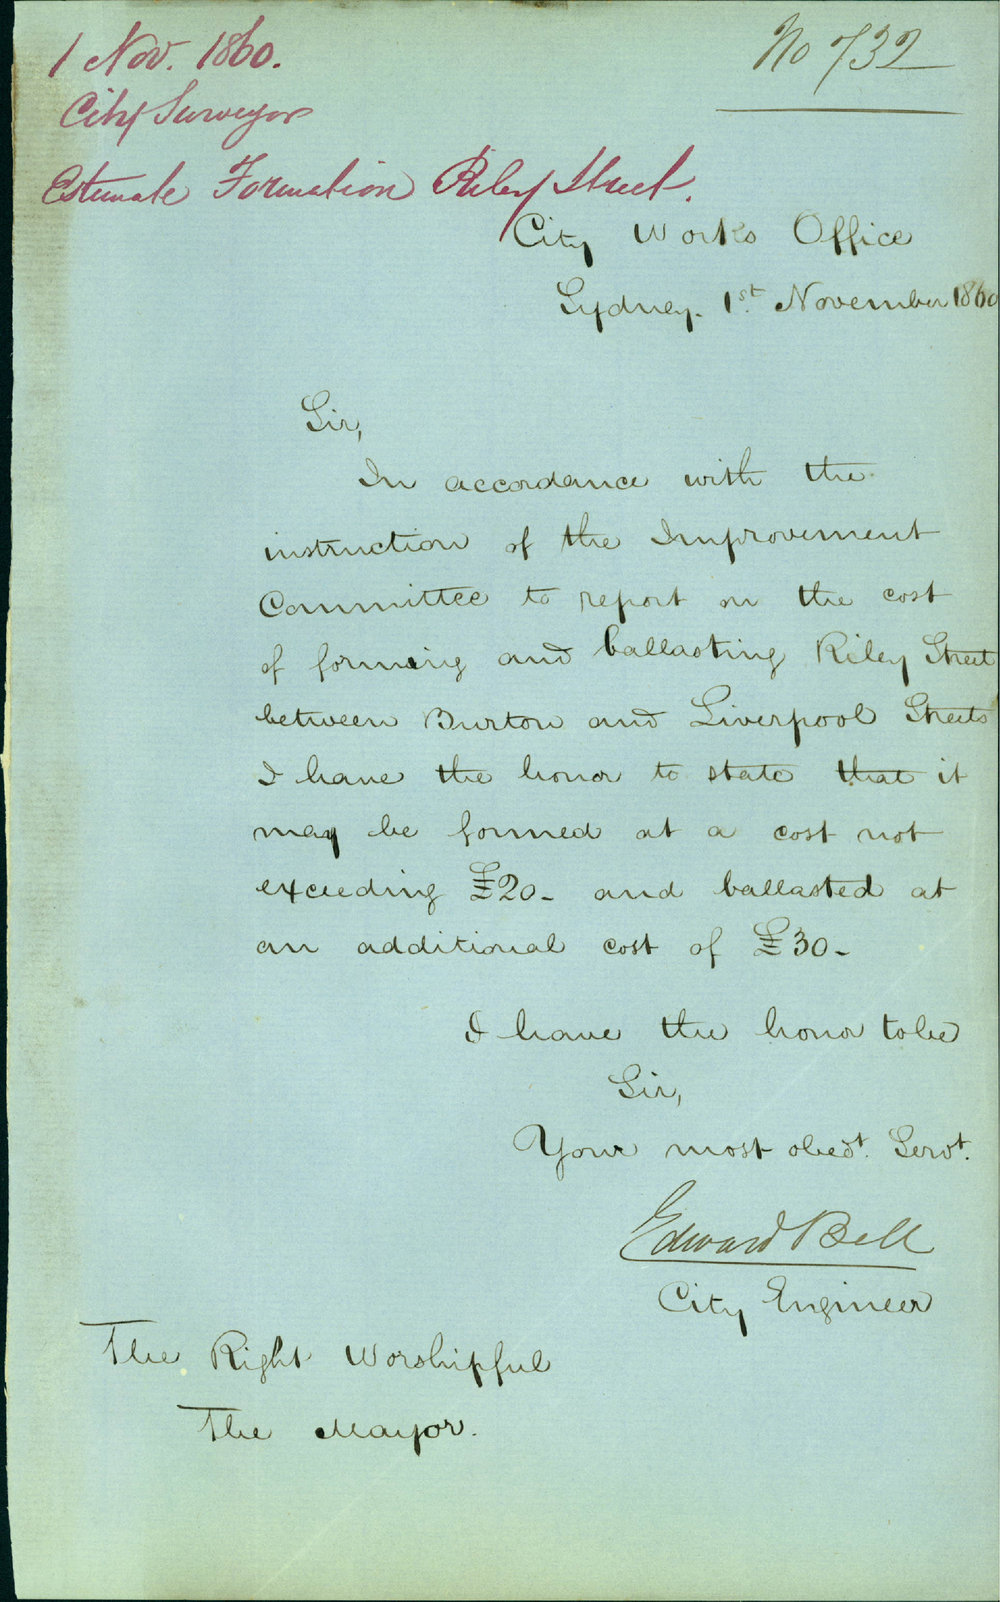 1 Nov. 1860.
No 732
City Surveyor
Estimate Formation Riley Street.
City Works Office
Sydney. 1st November 1860
Sir,
In accordance with the
instruction of the Improvement
Committee to report on the cost
of forming and ballasting Riley Street
between Burton and Liverpool Streets
I have the honor to state that it
may be formed at a cost not
exceeding £20- and ballasted at
an additional cost of £30-
I have the honor to be
Sir,
Your most obedt. Servt.
Edward Bell
City Engineer
The Right Worshipful
The Mayor.